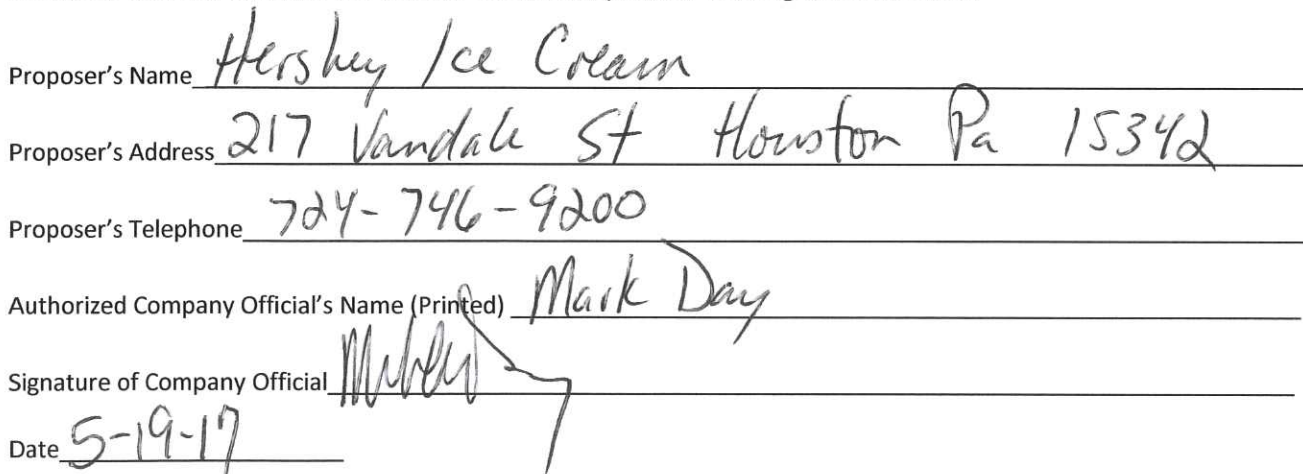 Proposer's Name Hershey Ice Cream
Proposer's Address 217 Vandale St Houston Pa 15342
Proposer's Telephone 724-746-9200
Authorized Company Official's Name (Printed) Mark Day
Signature of Company Official
Date 5-19-17